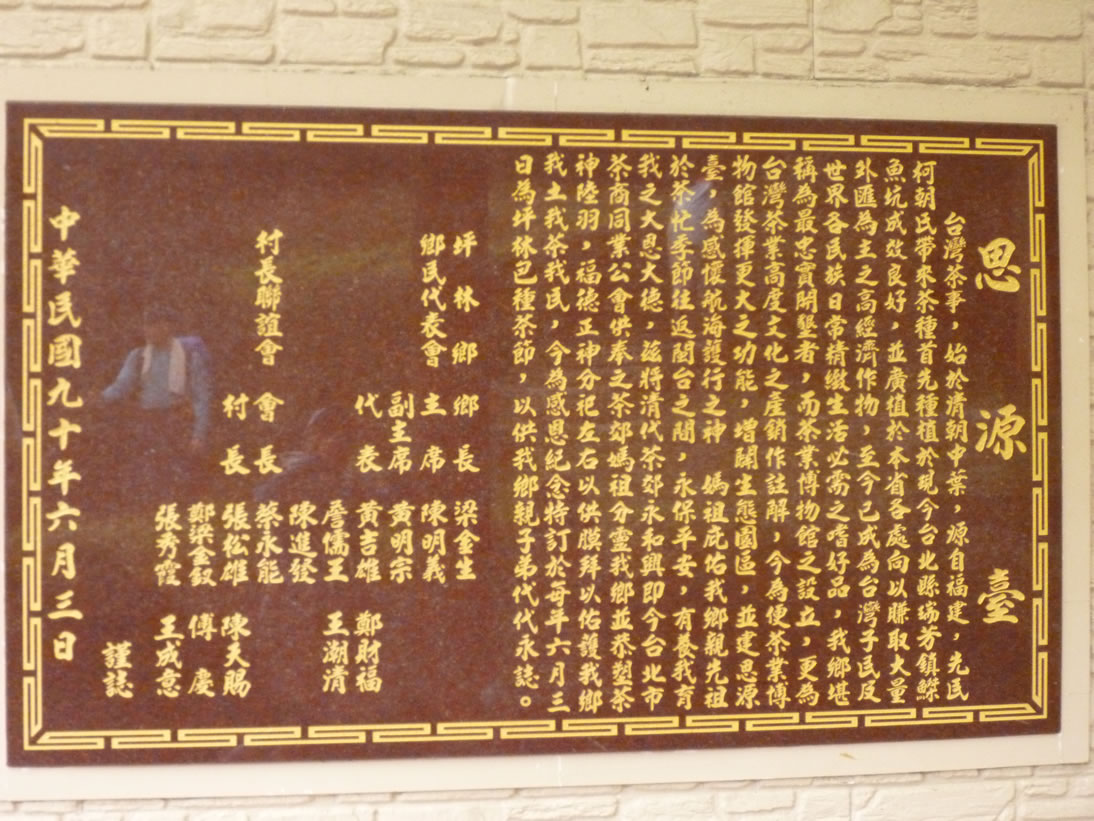 思源臺
台灣茶事，始於清朝中葉，源自福建，先民
柯朝氏帶來茶種首先種植於現今台北縣瑞芳鎮鰈
魚坑成效良好，並廣植於本省各處向以賺取大量
外匯為主之高經濟作物，至今已成為台灣子民及
世界各民族日常精緻生活必需之嗜好品，我鄉堪
稱為最忠實開墾者，而茶業博物館之設立，更為
台灣茶業高度文化之產銷作註解，今為使茶業博
物館發揮更大之功能，增闢生態園區，並建思源
臺，為感懷航海護行之神　媽祖庇佑我鄉親先祖
於茶忙季節往返閩台之間，永保平安，有養我育
我之大恩大德，茲將清代茶郊永和興即今台北市
茶商同業公會供奉之茶郊媽祖分靈我鄉並恭塑茶
神陸羽，福德正神分祀左右以供膜拜以佑護我鄉
我土我茶我民，今為感恩紀念特訂於每年六月三
日為坪林包種茶節，以供我鄉親子弟代代永誌。
坪林鄉　鄉長　梁金生
鄉民代表會　主席　陳明義
副主席　黃明宗
代表　黃吉雄　鄭財福
詹儒王　王潮清
陳進發
村長聯誼會　會長　蔡永能
村長　張松雄　陳天賜
鄭梁金釵　傅慶
張秀霞　王成意
謹誌
中華民國九十年六月三日